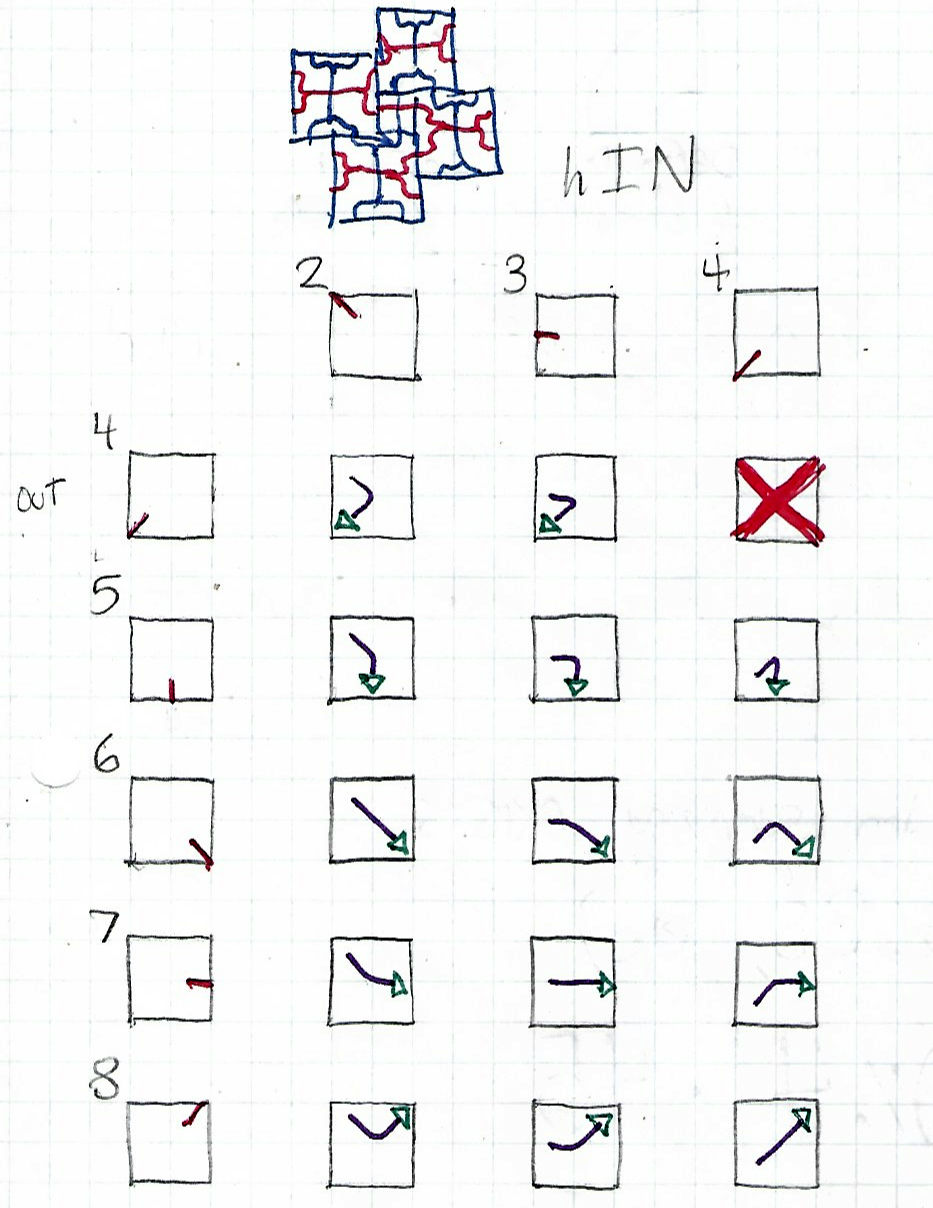 hIN
2 3 4
4
OUT
5
6
7
8